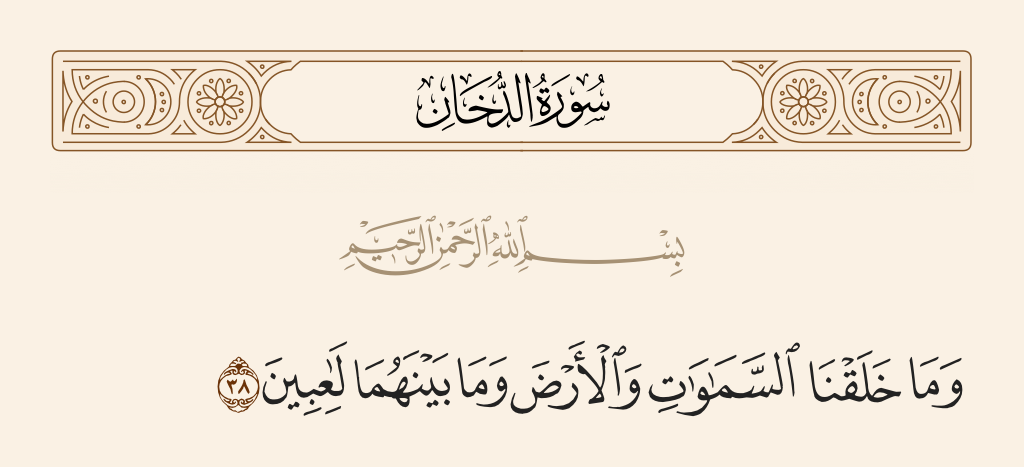 سُورَةُ الدُّخَانِ
بِسْمِ ٱللَّهِ ٱلرَّحْمَٰنِ ٱلرَّحِيمِ
وَمَا خَلَقْنَا ٱلسَّمَٰوَٰتِ وَٱلْأَرْضَ وَمَا بَيْنَهُمَا لَٰعِبِينَ ٣٨